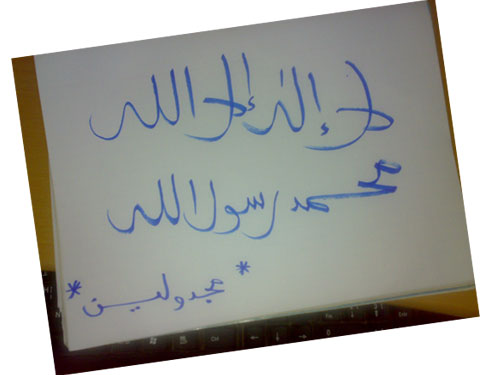 لا إله إلا الله
محمد رسول الله
* مجدولين *